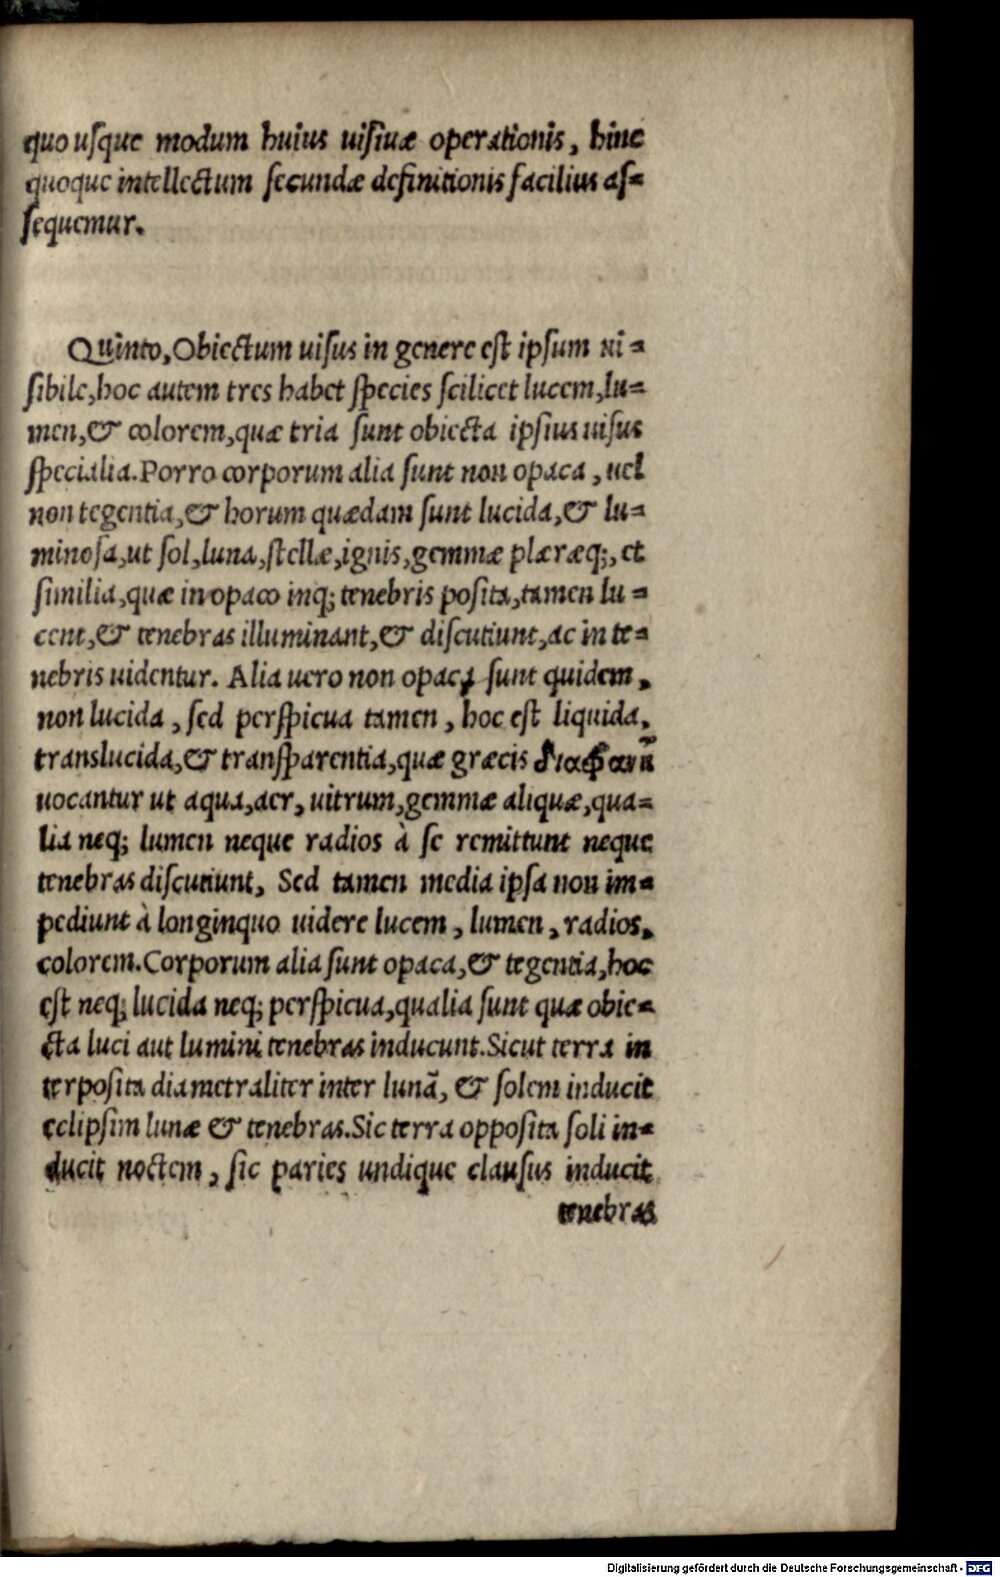 quo uſque modum huius uiſiuæ operationis, hinc
quoque intellectum ſecundæ definitionis facilius aſ-
ſequemur.
Quinto, Obiectum uiſus in genere eſt ipſum ui-
ſibile, hoc autem tres habet ſpecies ſcilicet lucem, lu-
men, & colorem, quæ tria ſunt obiecta ipſius uiſus
ſpecialia. Porro corporum alia ſunt non opaca, uel
non tegentia, & horum quædam ſunt lucida, & lu-
minoſa, ut ſol, luna, ſtellæ, ignis, gemmæ plæræq;, et
ſimilia, quæ in opaco inq; tenebris poſita, tamen lu-
cent, & tenebras illuminant, & diſcutiunt, ac in te-
nebris uidentur. Alia uero non opaca ſunt quidem,
non lucida, ſed perſpicua tamen, hoc eſt liquida,
translucida, & tranſparentia, quæ græcis διαφανῆ
uocantur ut aqua, aer, uitrum, gemmæ aliquæ, qua-
lia neq; lumen neque radios à ſe remittunt neque
tenebras diſcutiunt, Sed tamen media ipſa non im-
pediunt à longinquo uidere lucem, lumen, radios,
colorem. Corporum alia ſunt opaca, & tegentia, hoc
eſt neq; lucida neq; perſpicua, qualia ſunt quæ obie-
cta luci aut lumini tenebras inducunt. Sicut terra in
terpoſita diametraliter inter lunā, & ſolem inducit
eclipſim lunæ & tenebras. Sic terra oppoſita ſoli in-
ducit noctem, ſic paries undique clauſus inducit
tenebras
Digitalisierung gefördert durch die Deutsche Forschungsgemeinschaft - DFG